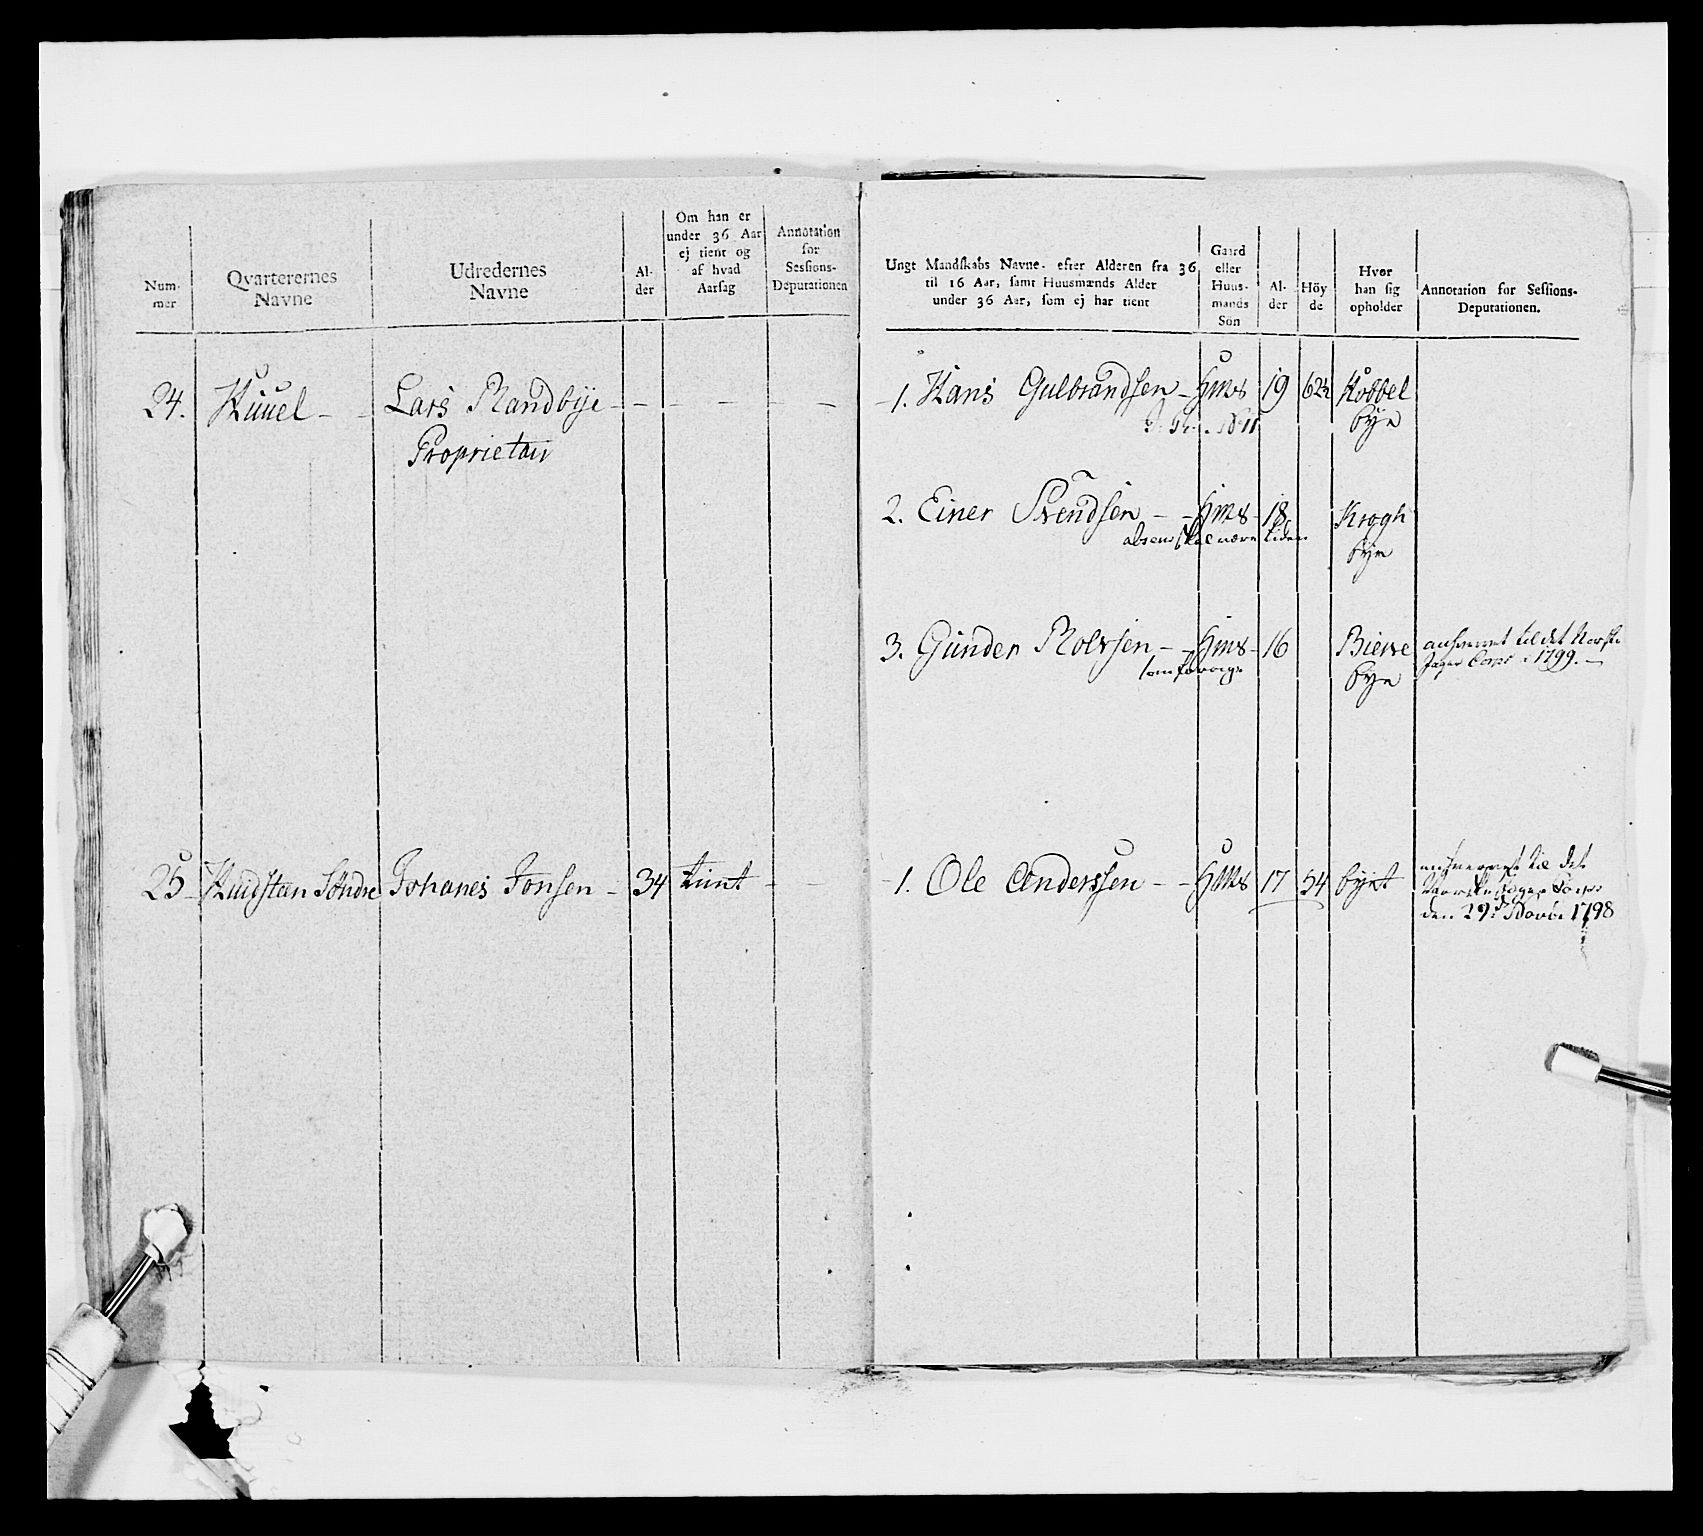 Num-
mer
Qvarterernes
Navne
Udredernes
Navne
Al-
der
Om han er
under 36 Aar
ej tient og
af hvad
Aarsag
Annotation
for
Sessions-
Deputationen
24. Kuuel - - Lars Randbye - - - - -
Proprietair
25 - Kuustan Søndre Johanes Jonsen - 34 tient - -
Ungt Mandskabs Navne efter Alderen fra 36
til 16 Aar, samt Huusmænds Alder
under 36 Aar, som ej har tient
Gaard
eller
Huus-
mands
Sön
Al-
der
Höy
de
Hvor
han sig
opholder
Annotation for Sessions-
Deputationen.
1. Hans Gulbrandsen - Hms 19 62½ Kobbel
bye
2. Einer Svendsen - - Hms - 18 Krogh
bye
3. Gunder Rolvsen - - Hms - 16 Bierre
bye
til det Norske
Jæger Corps i 1799. -
1. Ole Anderssen - - Hms 17 54 byet
til det
Norske Jæger Corps
den 29d Novbr 1798